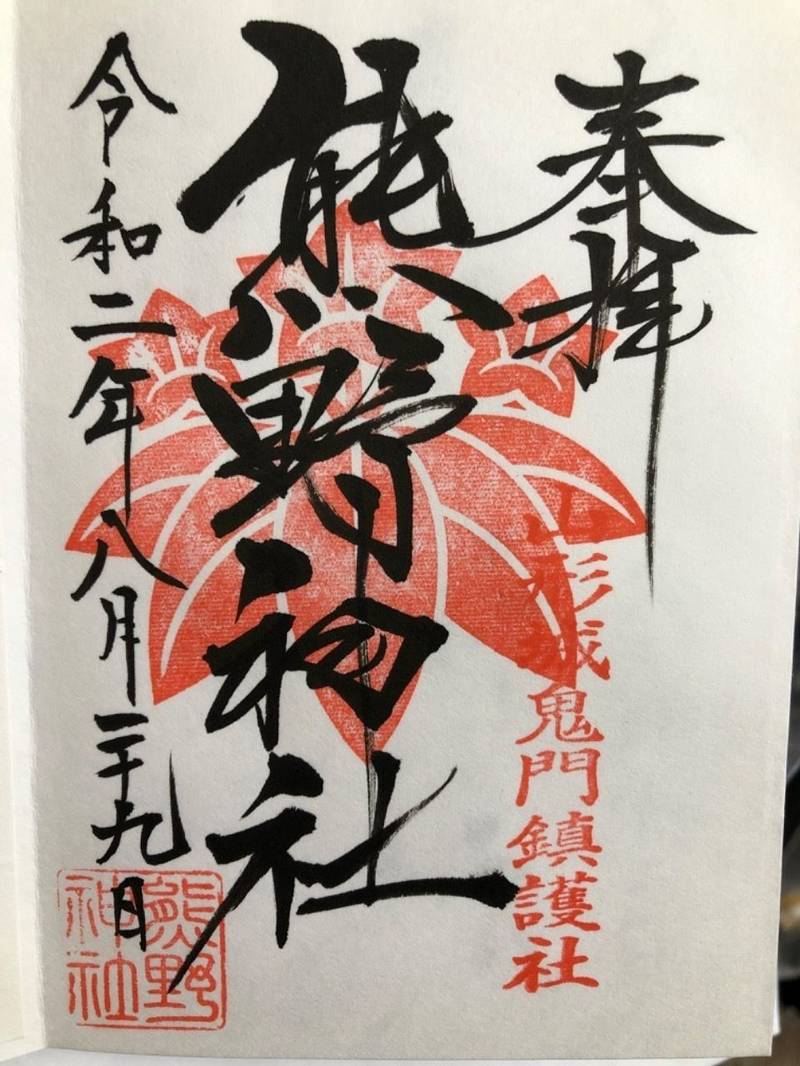 奉拝
山形城鬼門鎮護社
熊野神社
令和二年八月二十九日
熊野
神社